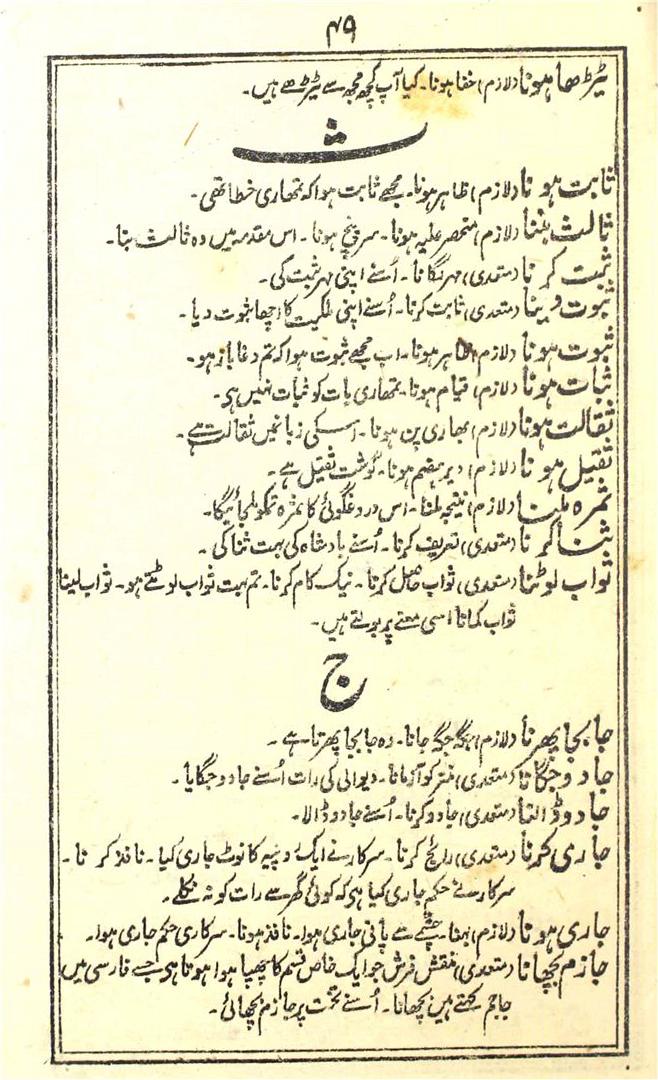 ۴۹
ٹیڑھا ہونا (لازم) خفا ہونا۔ کیا آپ کچھ مجھ سے ٹیڑھے ہیں۔
ث
ثابت ہونا (لازم) ظاہر ہونا۔ مجھے ثابت ہوا کہ تمھاری خطا تھی۔
ثالث بننا (لازم) منحصر علیہ ہونا۔ سرپنچ ہونا۔ اس مقدمہ میں وہ ثالث بنا۔
ثبت کرنا (متعدی) مہر لگانا۔ اُسنے اپنی مہر ثبت کی۔
ثبوت دینا (متعدی) ثابت کرنا۔ اُسنے اپنی ملکیت کا اچھا ثبوت دیا۔
ثبوت ہونا (لازم) ظاہر ہونا۔ اب مجھے ثبوت ہوا کہ تم دغا باز ہو۔
ثبات ہونا (لازم) قیام ہونا۔ تمھاری بات کو ثبات نہیں ہی۔
ثقالت ہونا (لازم) بھاری پن ہونا۔ اسکی زبانمیں ثقالت ہے۔
ثقیل ہونا (لازم) دیر ہضم ہونا۔ گوشت ثقیل ہے۔
ثمرہ ملنا (لازم) نتیجہ ملنا۔ اس دروغگوئی کا ثمرہ تمکو ملجائیگا۔
ثنا کرنا (متعدی) تعریف کرنا۔ اُسنے بادشاہ کی بہت ثنا کی۔
ثواب لوٹنا (متعدی) ثواب حاصل کرنا۔ نیک کام کرنا۔ تم بہت ثواب لوٹتے ہو۔ ثواب لینا
ثواب کمانا اسی معنے پر بولتے ہیں۔
ج
جا بجا پھرنا (لازم) جگہ جگہ جانا۔ وہ جا بجا پھرتا ہے۔
جادو جگانا (متعدی) منتر کو آزمانا۔ دیوالی کی رات اُسنے جادو جگایا۔
جادو ڈالنا (متعدی) جادو کرنا۔ اُسنے جادو ڈالا۔
جاری کرنا (متعدی) رائج کرنا۔ سرکار نے ایک روپیہ کا نوٹ جاری کیا۔ نافذ کرنا۔
سرکار نے حکم جاری کیا ہی کہ کوئی گھر سے رات کو نہ نکلے۔
جاری ہونا (لازم) بہنا۔ چشمے سے پانی جاری ہوا۔ نافذ ہونا۔ سرکاری حکم جاری ہوا۔
جازم بچھانا (متعدی) منقش فرش جو ایک خاص قسم کا چھپا ہوا ہوتا ہی جسے فارسی میں
جاجم کہتے ہین بچھانا۔ اُسنے تخت پر جازم بچھائی۔